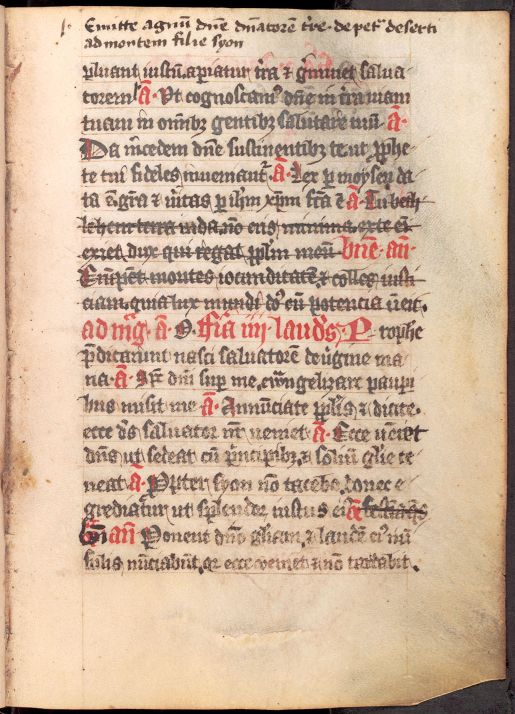 Emitte agnū dn̄e dn̄atorē tr̄e · de pet̄ deserti
ad montem filie syon
pluant iustū apiatur tr̄a ⁊ gr̄minet salua
torem a̅ · Vt cognoscam⁹ dn̄e in tr̄a uiam
tuam in omībꝫ gentibꝫ salutare tuū · a̅ ·
Da m̄cedem dn̄e sustinentibꝫ te ut ꝓphe
te tui fideles inueniant᷑ · a̅ · Lex ꝑ moysen da
ta ē gr̄a ⁊ ūitas ꝑ ih̄m xp̄m fc̄a ē a̅ · Tu beth
lehem terra iuda nō eris minima ex te em̄
exiet dux qui regat pp̄lm meū bn̄e · an̄ ·
montes iocunditatē ⁊ colles iusti
ciam quia lux mundi dn̄s cū potencia uēit ·
ad mḡ · a̅ · O · fr̄ia iiij laud̄s · P rophe
p̄dicauerunt nasci saluatorē de uirgine ma
ria · a̅ · Sp̄c dn̄i sup me, ewangelizare paupi
bus misit me · a̅ · Annunciate pp̄lis ⁊ dicite ·
ecce ds̄ saluator nr̄ ueniet · a̅ · Ecce ueniet
dn̄s ut sedeat cū p̄ncipibꝫ ⁊ soliū glīe te
neat a̅ · Propter syon nō tacebo, donec e
grediat᷑ ut splendor iustus ei⁹ a̅
bn̄ an̄ · Ponent dn̄o glīam, ⁊ laudē ei⁹ in
sulis nūciabūt, qr ecce ueniet ⁊ nō tardabit ·